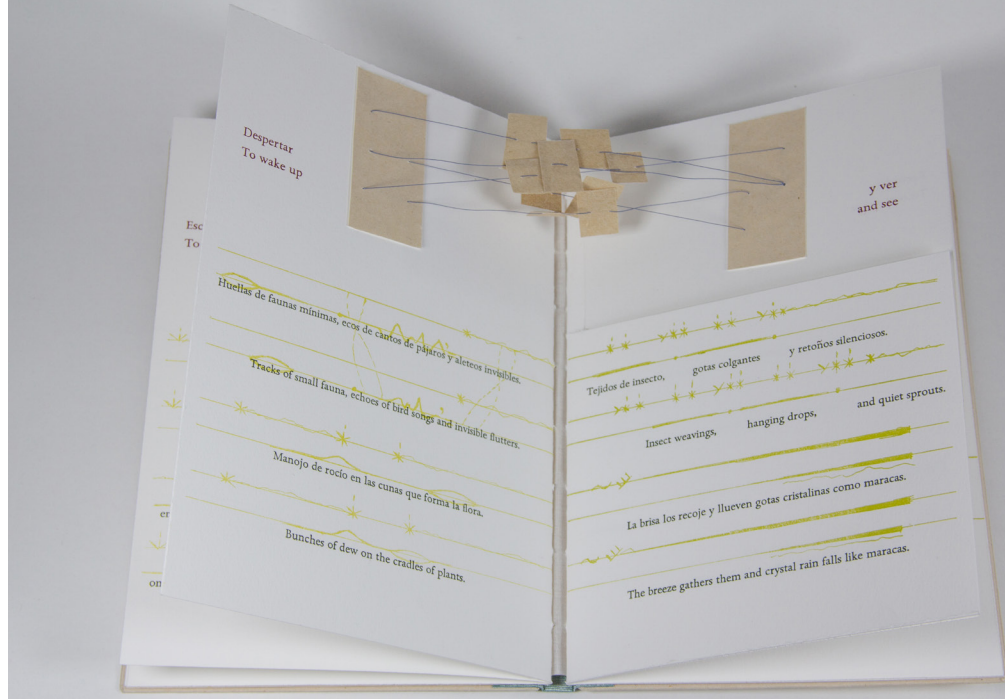 Despertar
To wake up
y ver
and see
To
Huellas de faunas mínimas, ecos de cantos de pájaros y aleteos invisibles.
Tracks of small fauna, echoes of bird songs and invisible flutters.
Manojo de rocío en las cunas que forma la flora.
Bunches of dew on the cradles of plants.
Tejidos de insecto, gotas colgantes y retoños silenciosos.
Insect weavings, hanging drops, and quiet sprouts.
La brisa los recoje y llueven gotas cristalinas como maracas.
The breeze gathers them and crystal rain falls like maracas.